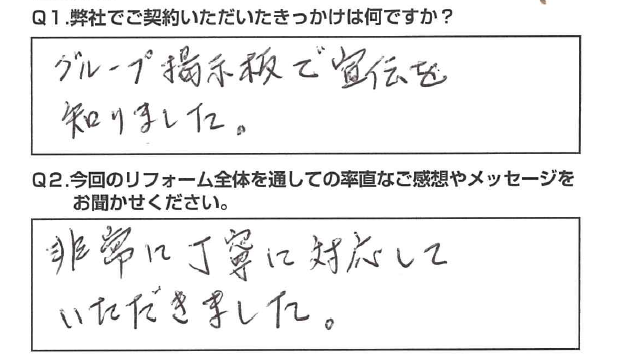 Q1.弊社でご契約いただいたきっかけは何ですか？
グループ掲示板で宣伝を
知りました。
Q2.今回のリフォーム全体を通しての率直なご感想やメッセージを
お聞かせください。
非常に丁寧に対応して
いただきました。